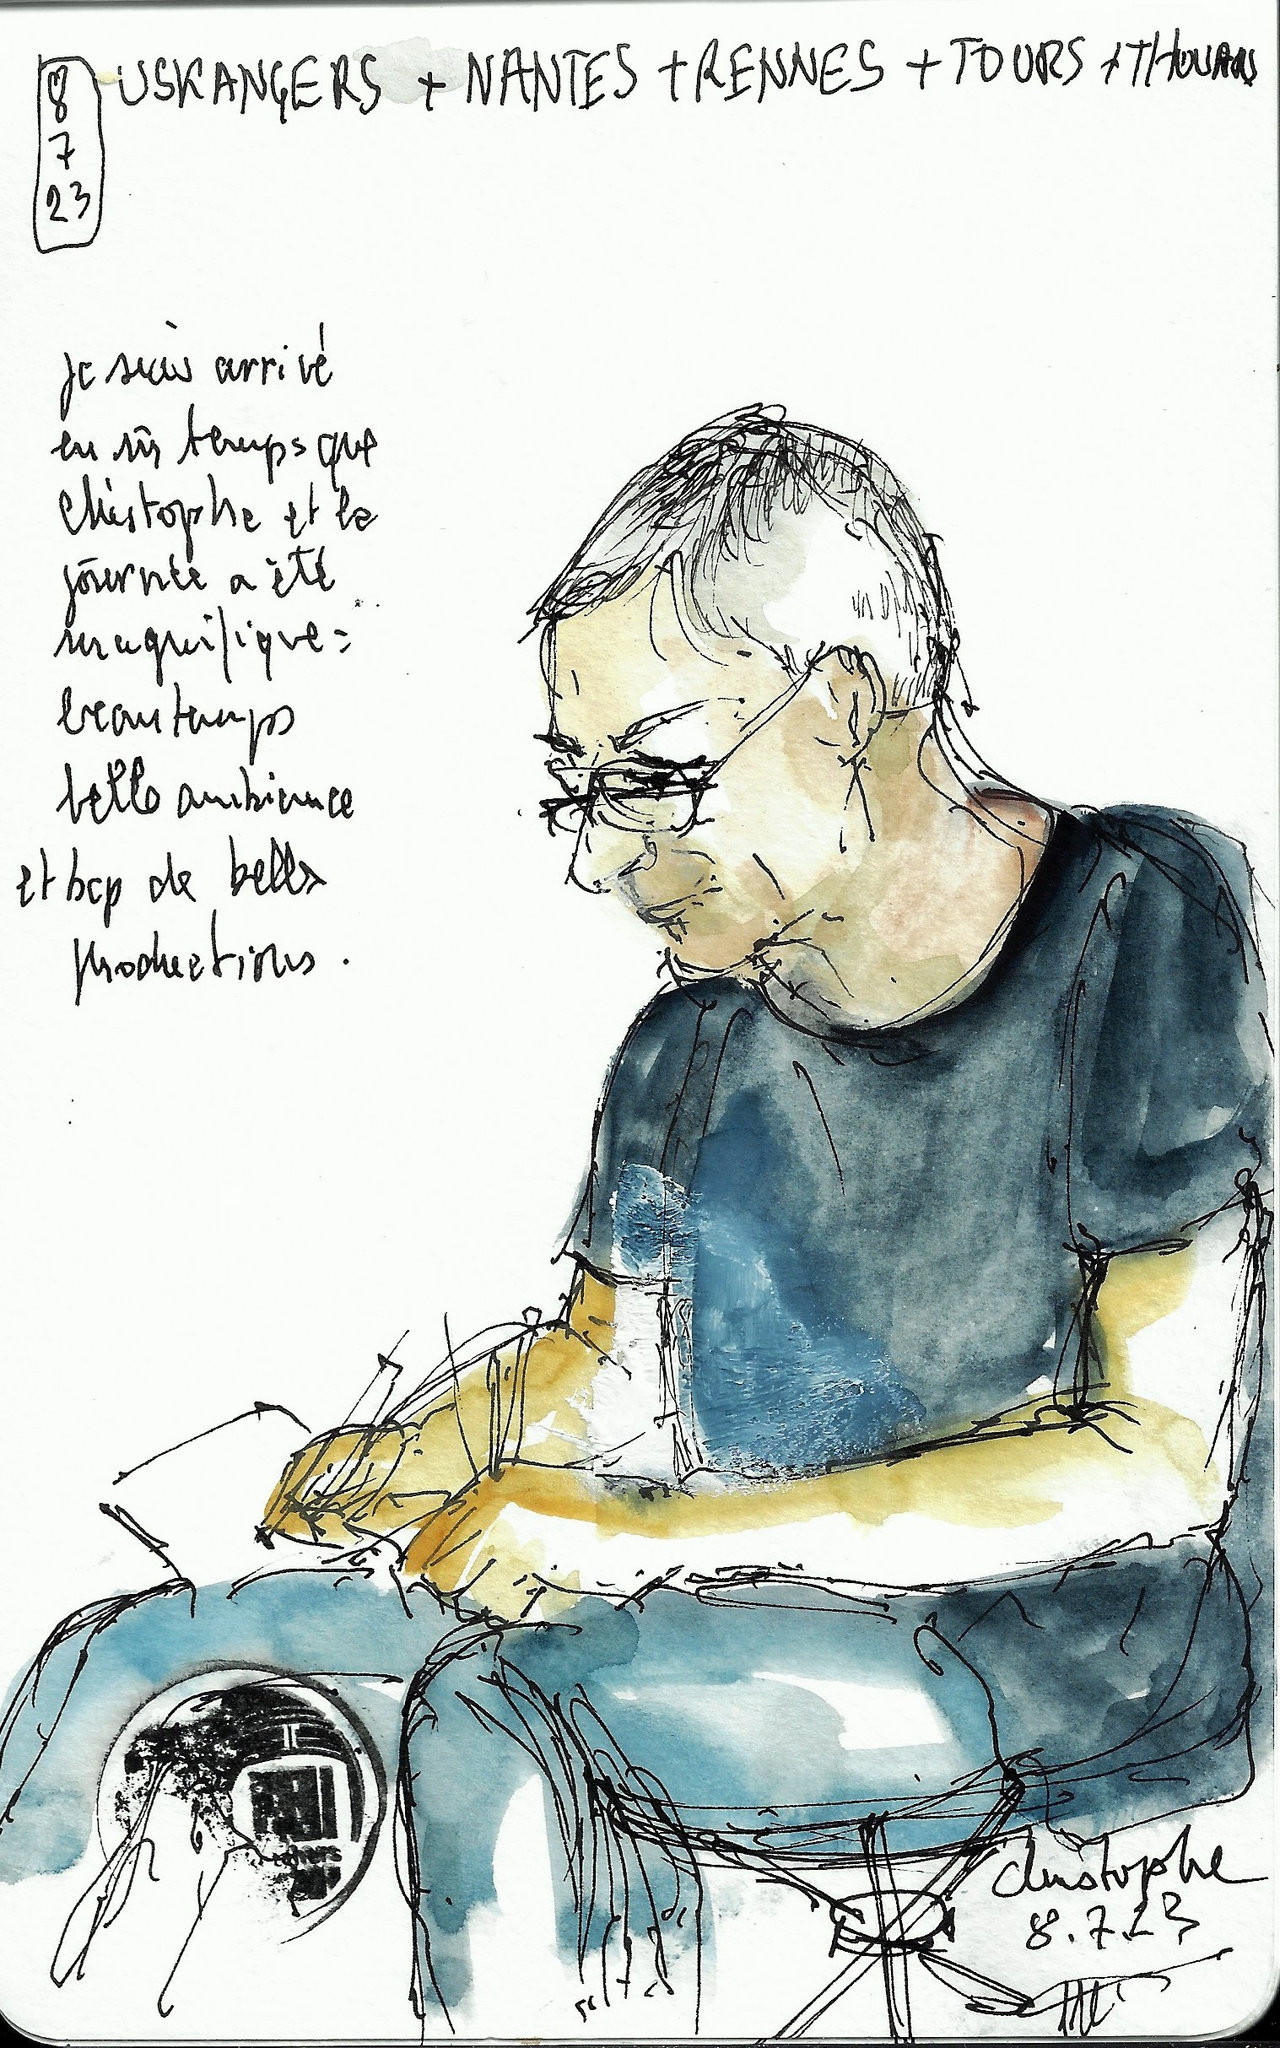 8
7
23
USKANGERS + NANTES + RENNES + TOURS + THOUARS
je suis arrivé
en m̂ temps que
Christophe et la
journée a été
magnifique =
beau temps
belle ambiance
et bcp de belles
productions.
Christophe
8.7.23